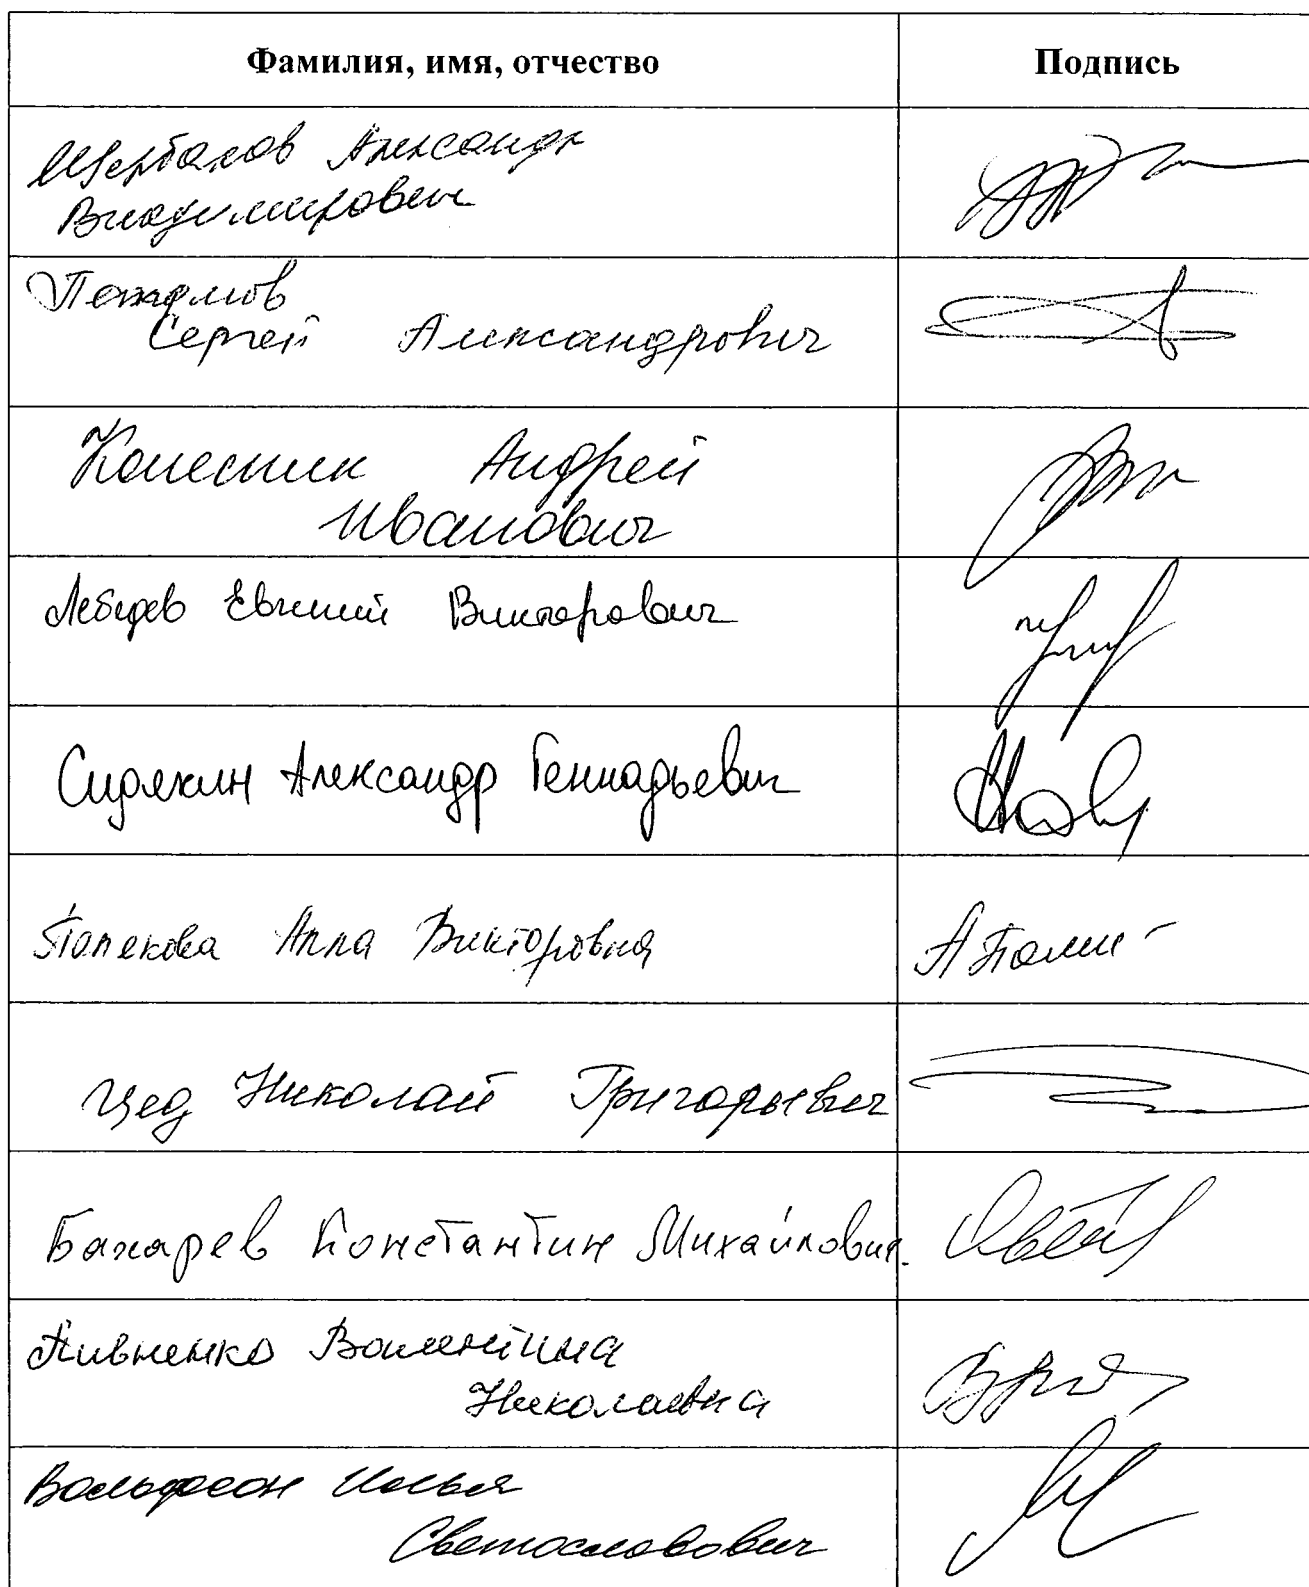 Фамилия, имя, отчество Подпись
Щербаков Александр
Владимирович
Сергей Александрович
Колесник Андрей
Иванович
Лебедев Евгений Викторович
Сидякин Александр Геннадьевич
Полякова Алла Викторовна
Цед Николай Григорьевич
Бахарев Константин Михайлович.
Пивненко Валентина
Николаевна
Вольфсон Илья
Светославович